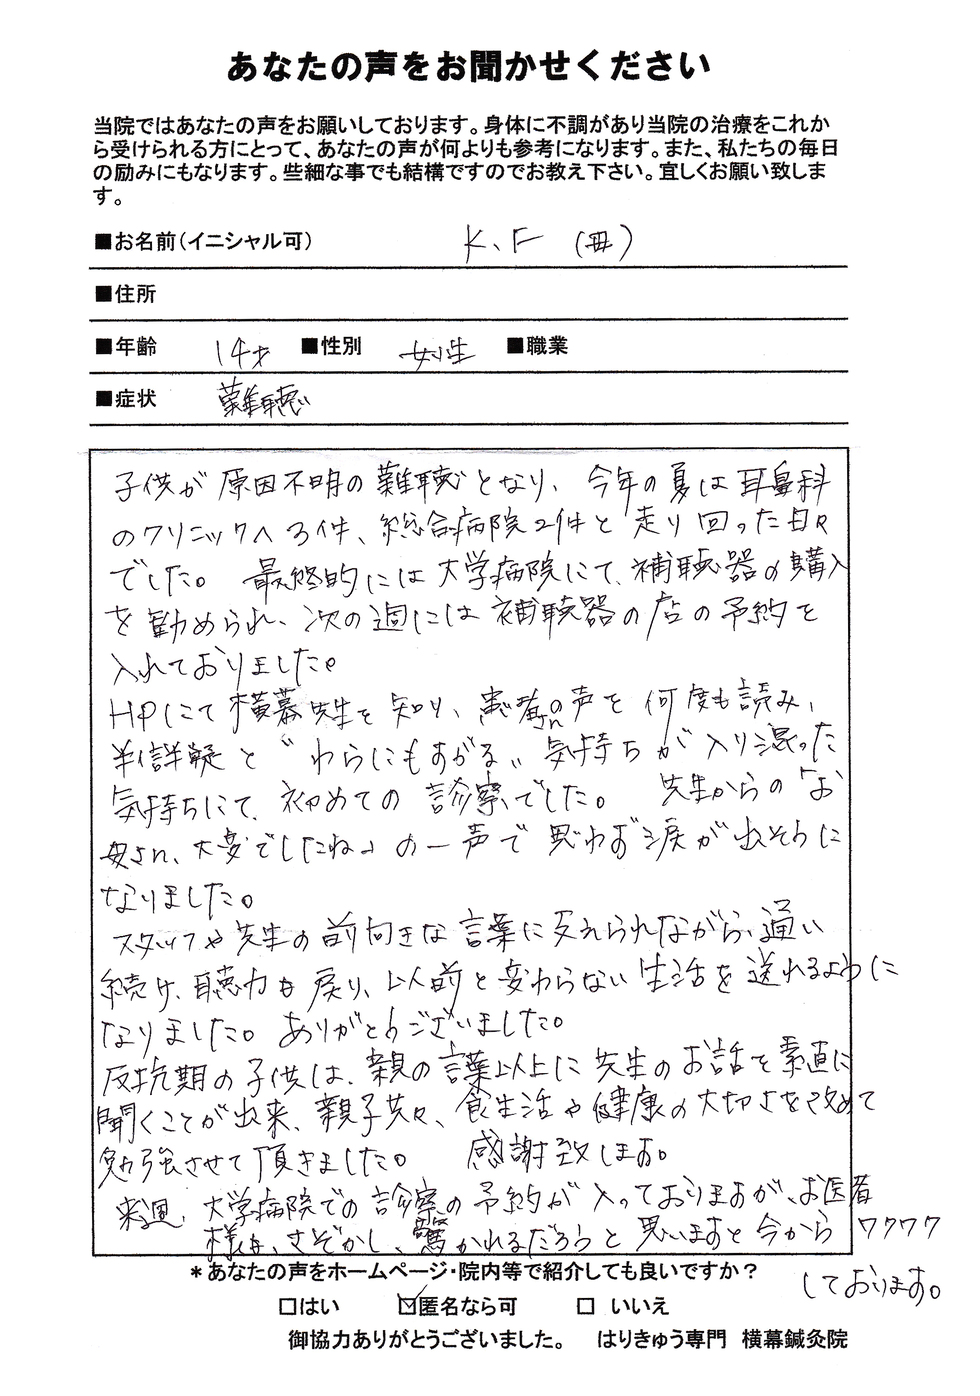 あなたの声をお聞かせください
当院ではあなたの声をお願いしております。身体に不調があり当院の治療をこれか
ら受けられる方にとって、あなたの声が何よりも参考になります。また、私たちの毎日
の励みにもなります。些細な事でも結構ですのでお教え下さい。宜しくお願い致しま
す。
■お名前(イニシャル可) K、F (母)
■住所
■年齢 14才 ■性別 女性 ■職業
■症状 難聴
子供が原因不明の難聴となり、今年の夏は耳鼻科
のクリニックへ3件、総合病院2件と走り回った日々
でした。 最終的には大学病院にて、補聴器の購入
を勧められ、次の週には補聴器の店の予約を
入れておりました。
HPにて横幕先生を知り、患者さんの声を何度も読み、
半信半疑と“わらにもすがる”気持ちが入り混った
気持ちにて、初めての診察でした。 先生からの「お
母さん、大変でしたね」の一声で思わず涙が出そうに
なりました。
スタッフや先生の前向きな言葉に支えられながら、通い
続け、聴力も戻り、以前と変わらない生活を送れるように
なりました。ありがとうございました。
反抗期の子供は、親の言葉以上に先生のお話を素直に
聞くことが出来、親子共々、食生活や健康の大切さを改めて
勉強させて頂きました。 感謝致します。
来週、大学病院での診察の予約が入っておりますが、お医者
様は、さぞかし、驚かれるだろうと思いますと今からワクワク
しております。
*あなたの声をホームページ・院内等で紹介しても良いですか?
□はい ☑匿名なら可 □ いいえ
御協力ありがとうございました。 はりきゅう専門 横幕鍼灸院